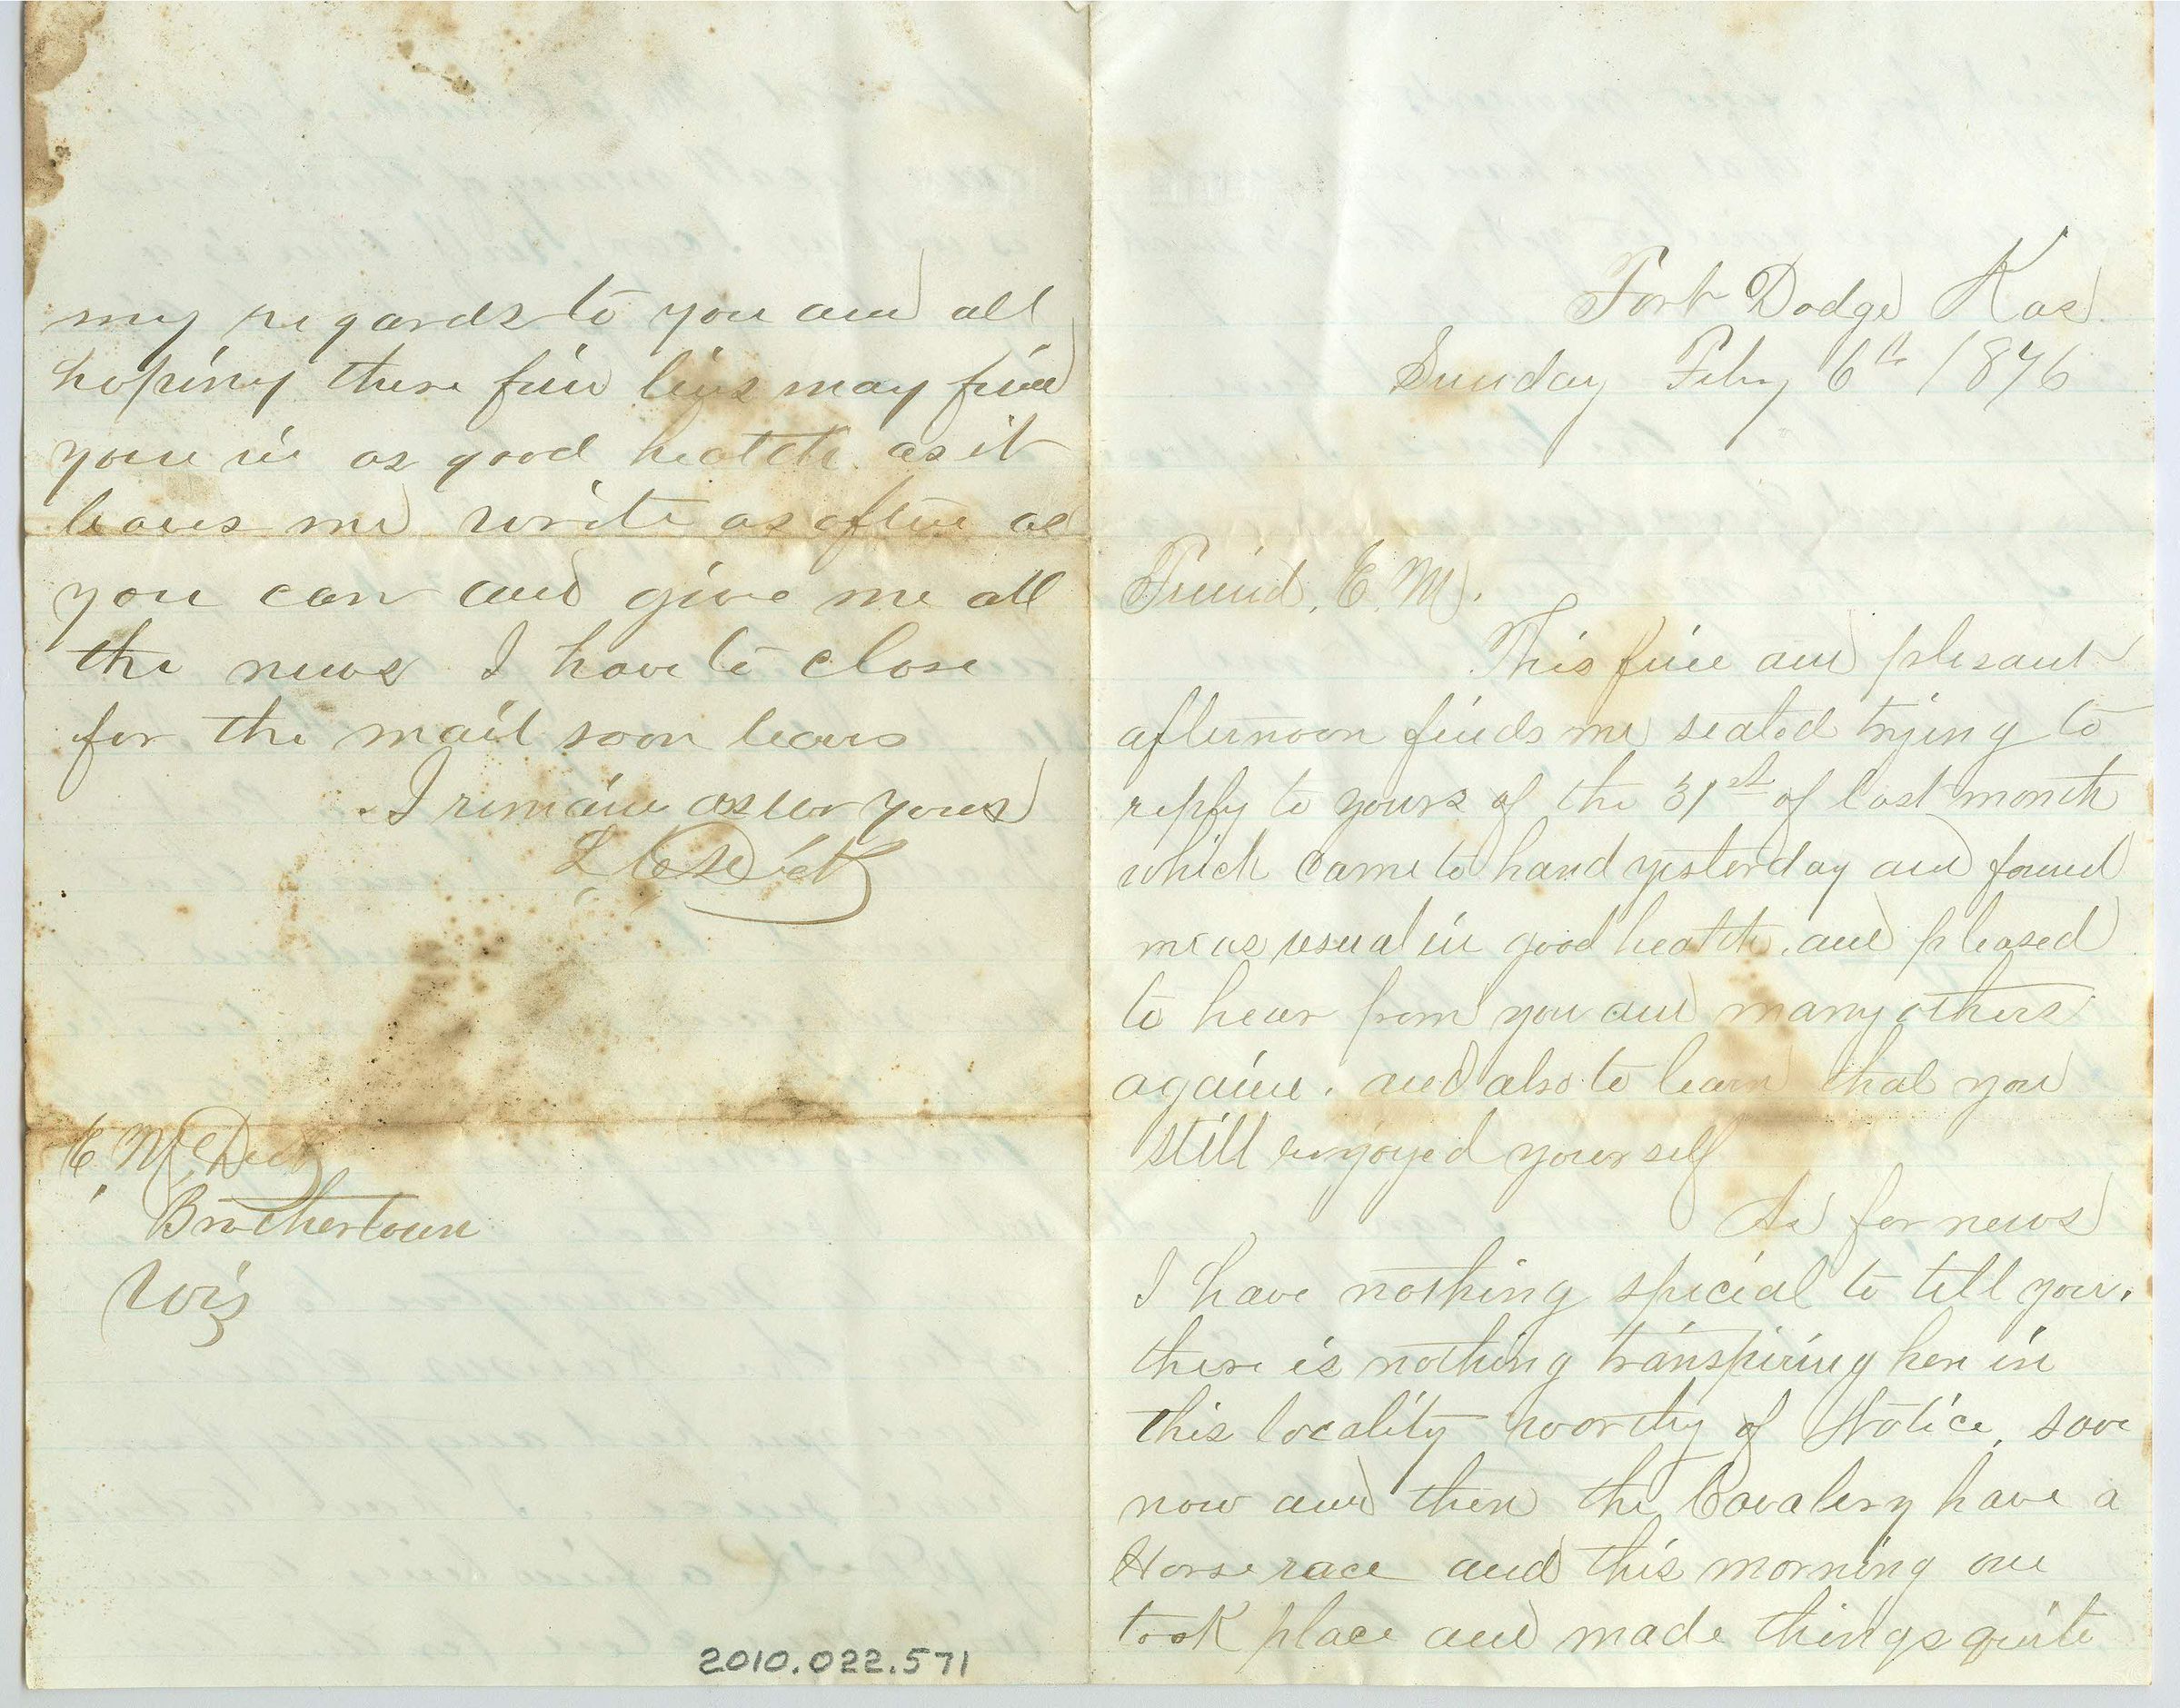 my regards to you and all
hoping these few lines may find
you in as good health as it
leaves me write as often as
you can and give me all
the news I have to close
for the mail soon leaves
I remain as ever yours
L. C. S. Dick
E. M. Dick
Brothertown
Wis
2010.022.571
Fort Dodge Kas.
Sunday Feby 6th 1876
Friend. E. M.
This fine and plesant
afternoon finds me seated trying to
reply to yours of the 31st of last month
which came to hand yesterday and found
me as usual in good health. and pleased
to hear from you and many others
again. and also to learn that you
still enjoyed yourself
As for news
I have nothing special to tell you.
there is nothing transpiring here in
this locality worthy of Notice, save
now and then the Cavalery have a
Horse race and this morning one
took place and made things quite